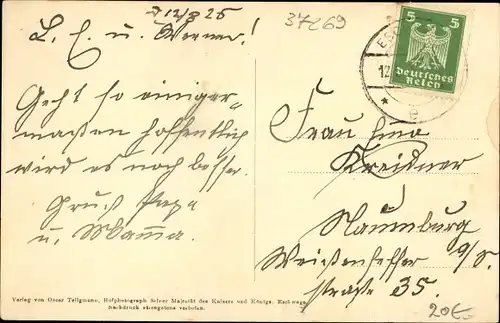 12/8 25
37269
L. E. u. Werner!
Geht so einiger=
maßen hoffentlich
wird es noch besser.
Gruß Papa
u. Mama.
5 5
Deutsches
Reich
Frau
Kreidner
Naumburg
a/S.
Weißenfelser
straße 35.
20€
Verlag von Oscar Tellgmann, Hofphotograph Seiner Majestät des Kaisers und Königs, Eschwege.
Nachdruck strengstens verboten.